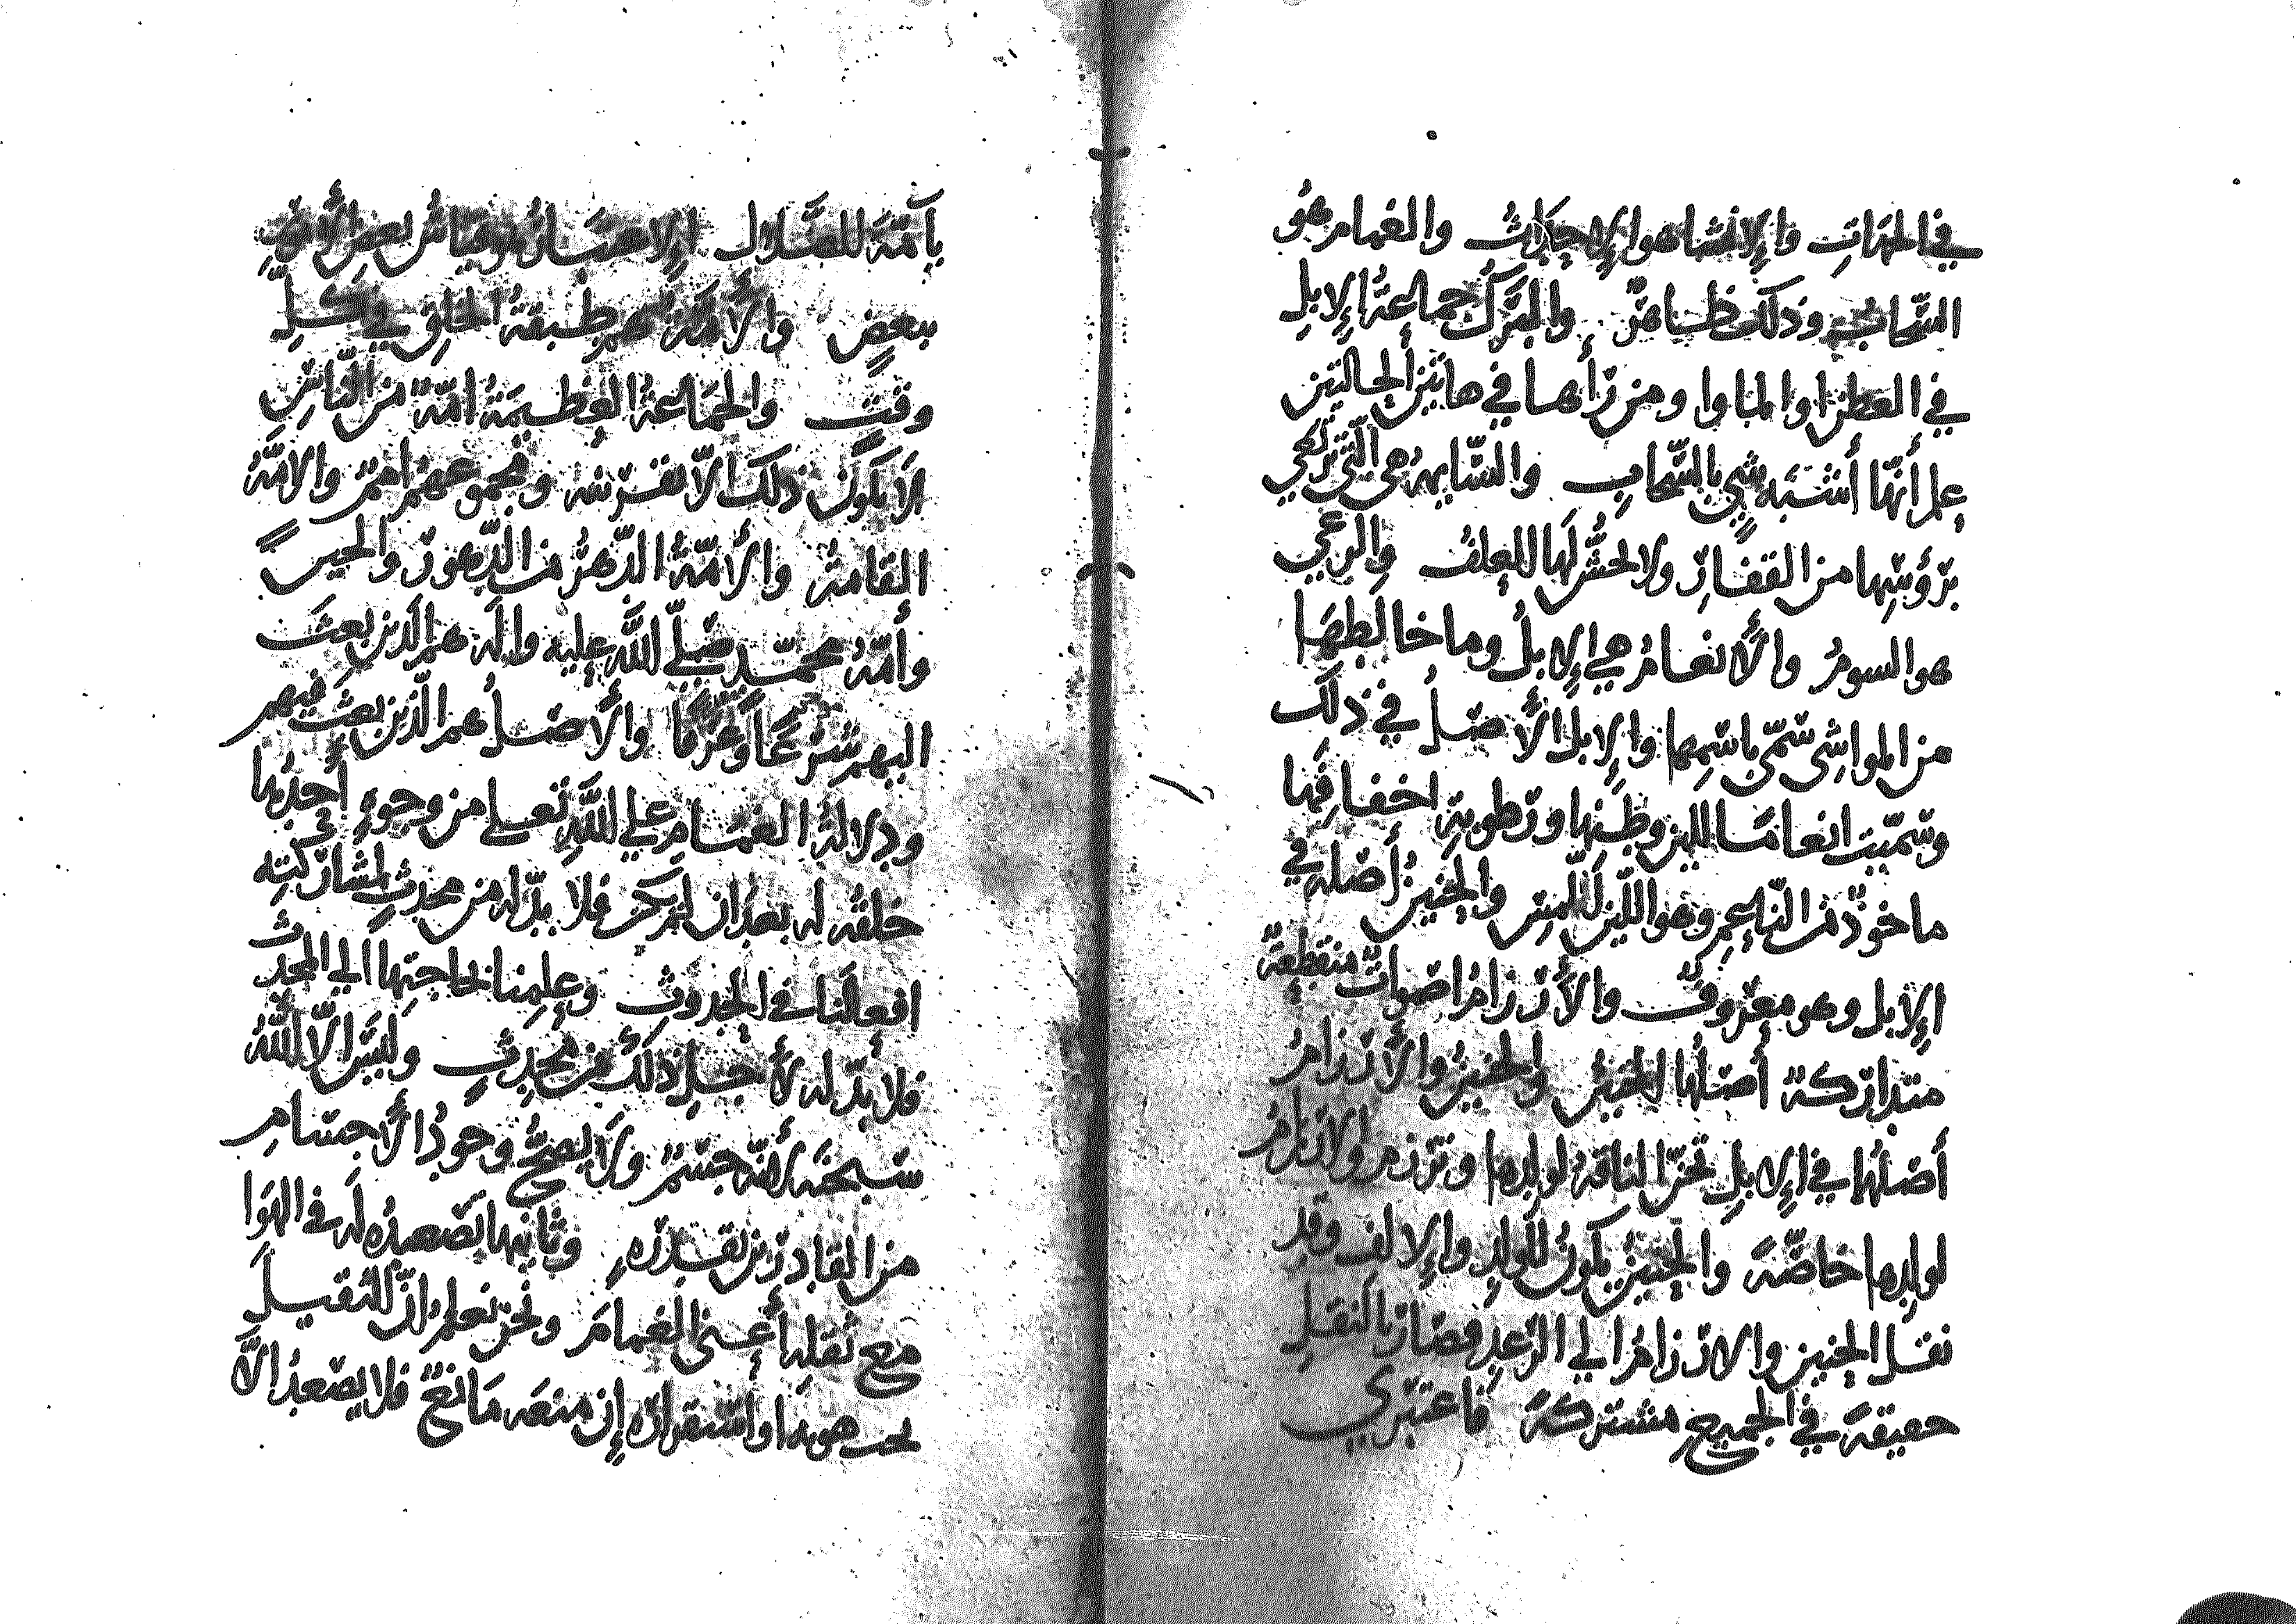 في الجهات والإنشا هو الإحداث والغمام هو
السحاب وذلك ظاهر والبرك جماعة الإبل
في العطن او المباوا ومن رأها في هاتين الحالتين
علم أنها أشبه شي بالسحاب والسايمة هي التي ترعي
برؤسها من القفار ولا يحش لها للعلف والرعي
هو السوم والأنعام هي الإبل وما خالطها
من المواشي سمي باسمها والإبل الأصل في ذلك
وسميت انعاما للين وطنها ورطوبة اخفافها
ماخوذ من النعيم وهو اللين للمس والحنين أصله في
الإبل وهو معروف والأرزام اصوات منقطعة
متداركة أصلها الحنين والحنين والأرزام
أصلهما في الإبل تحن الناقة لولدها وترزم والارزام
لولدها خاصة والحنين يكون للولد والإلف وقد
نقل الحنين والارزام الي الرعد فصار بالنقل
حقيقة في الجميع مشتركة فاعتبري
يا أمة للضلال الإعتبار هو قياس بعض الأمور
ببعض والأمة هم طبقة الخلق في كل
وقت والجماعة العظيمة امة من الناس
لا يكون ذلك الا بقرينة ومجموعهم امم والامة
القامة والأمة الدهر من الدهور والحين
وأمة محمد صلي الله عليه واله هم الذين بعث
اليهم شرعا وعرفا والأصل هم الذين بعث فيهم
ودلالة الغمام علي الله تعلي من وجوه أحدها
خلقه له بعد ان لم يكن فلا بد له من محدث لمشاركته
افعالنا في الحدوث وعلمنا بحاجتها الي المحدث
فلا بد له لأجل ذلك من محدث وليس الا الله
سبحنه لأنه جسم ولا يصح وجود الأجسام
من القادرين بقدرة وثانيها تصعيده له في الهوا
مع ثقله أعني الغمام ونحن نعلم ان للثقيل
يجب هويه او استقراره إن منعه مانع فلا يصعد الا